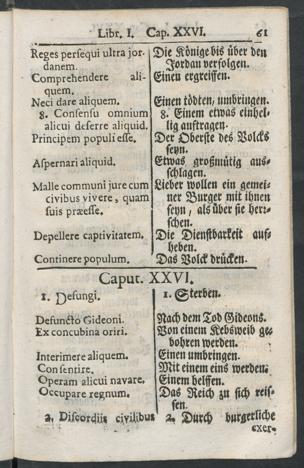 Libr. I. Cap. XXVI. 61
Reges persequi ultra jor-
danem.
Comprehendere ali-
quem.
Neci dare aliquem.
8. Consensu omnium
alicui deferre aliquid.
Principem populi esse.
Aspernari aliquid.
Malle communi jure cum
civibus vivere, quam
suis præesse.
Depellere captivitatem.
Continere populum.
Die Könige bis über den
Jordan verfolgen.
Einen ergreiffen.
Einen tödten, umbringen.
8. Einem etwas einhel-
lig auftragen.
Der Oberste des Volcks
seyn.
Etwas großmütig aus-
schlagen.
Lieber wollen ein gemei-
ner Burger mit ihnen
seyn, als über sie herr-
schen.
Die Dienstbarkeit auf-
heben.
Das Volck drücken.
Caput. XXVI.
1. Defungi.
Defuncto Gideoni.
Ex concubina oriri.
Interimere aliquem.
Consentire.
Operam alicui navare.
Occupare regnum.
2. Discordiis civilibus
1. Sterben.
Nach dem Tod Gideons.
Von einem Kebsweib ge-
bohren werden.
Einen umbringen.
Mit einem eins werden.
Einem helffen.
Das Reich zu sich reis-
sen.
2. Durch burgerliche
exer-